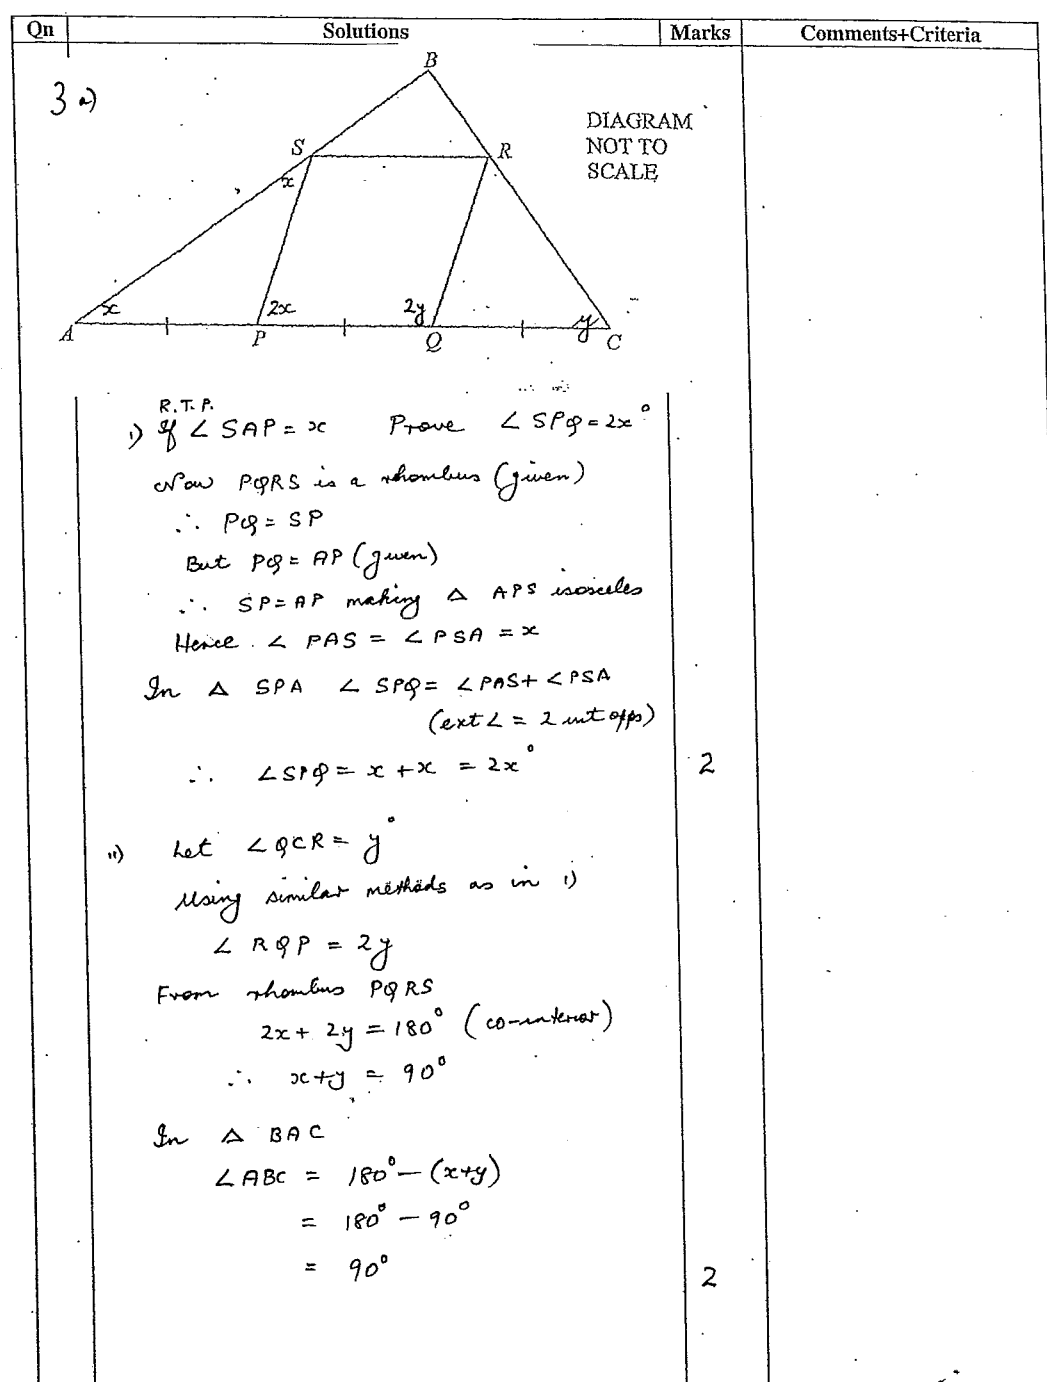 Qn Solutions Marks Comments+Criteria
3 a)
B
DIAGRAM
NOT TO
SCALE
S R
x
x 2x 2y y
A P Q C
R.T.P.
i) If ∠ SAP = x Prove ∠ SPQ = 2x°
Now PQRS is a rhombus (given)
∴ PQ = SP
But PQ = AP (given)
∴ SP = AP making Δ APS isosceles
Hence ∠ PAS = ∠ PSA = x
In Δ SPA ∠ SPQ = ∠PAS + ∠PSA
(ext ∠ = 2 int opps)
∴ ∠SPQ = x + x = 2x° 2
ii) Let ∠QCR = y°
Using similar methods as in i)
∠ RQP = 2y
From rhombus PQRS
2x + 2y = 180° (co-interior)
∴ x+y = 90°
In Δ BAC
∠ABC = 180° – (x+y)
= 180° – 90°
= 90° 2